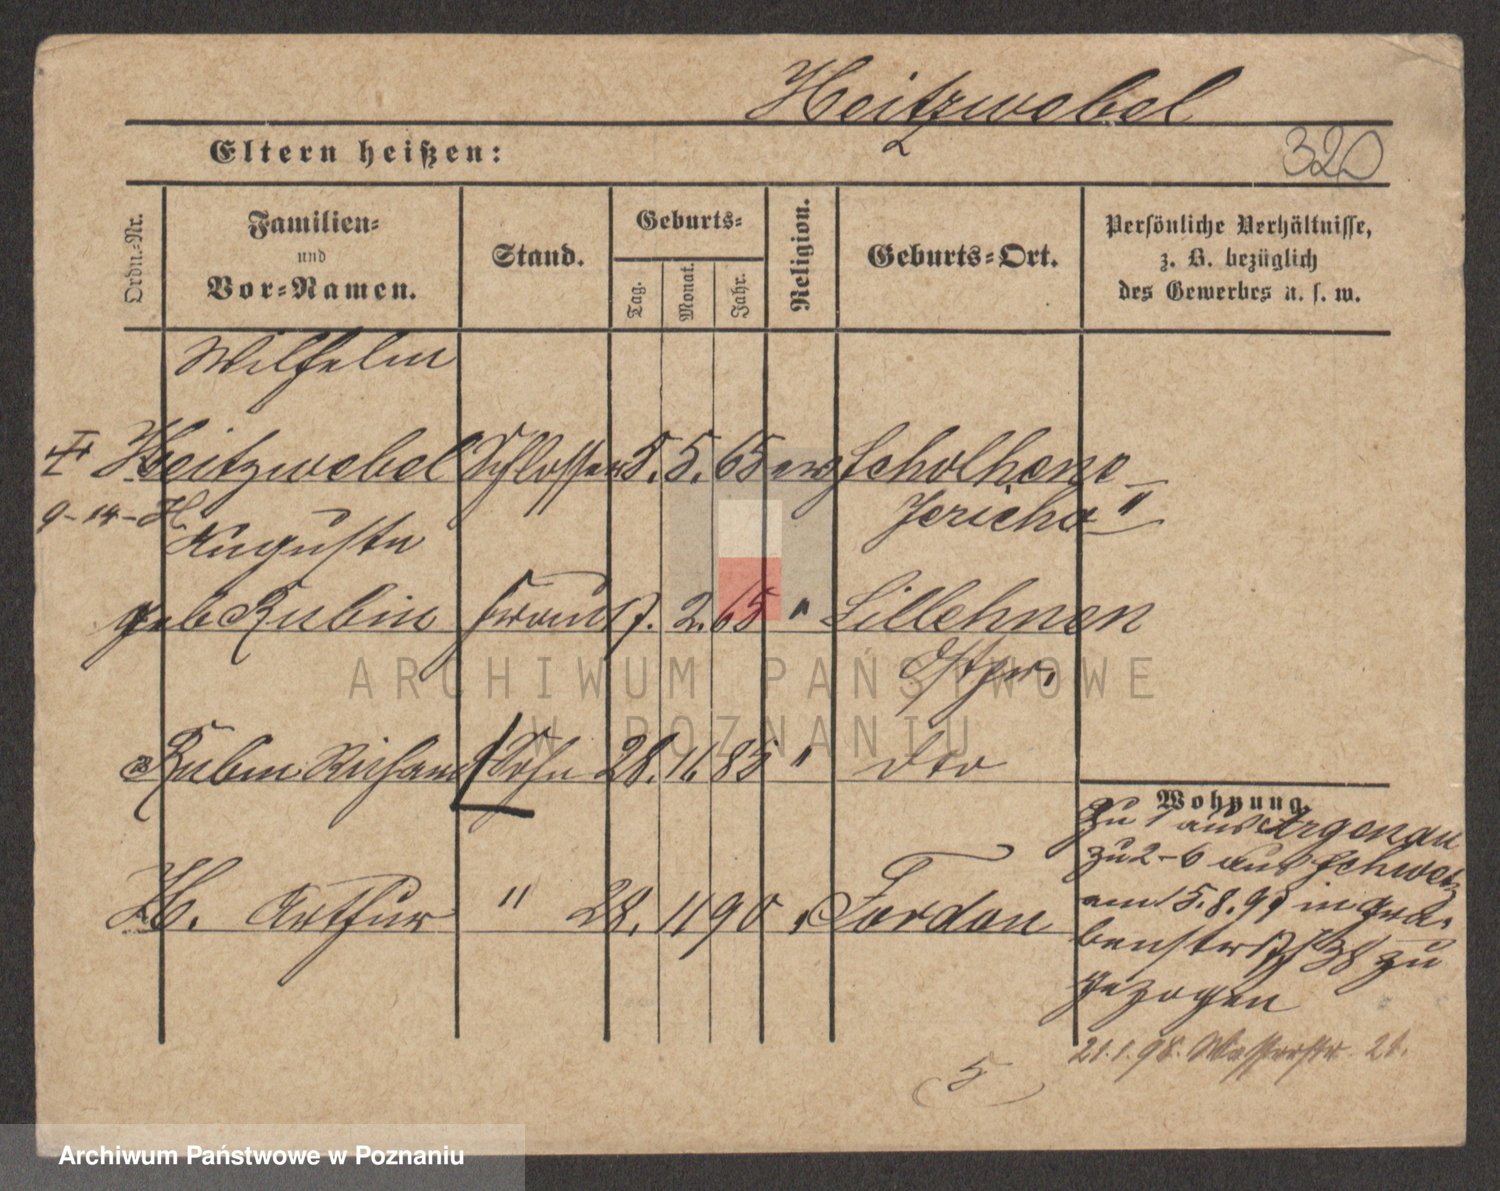 Heitzwebel
Eltern heißen:
320
Ordn.-Nr.
Familien-
und
Vor-Namen.
Stand.
Geburts-
Tag.
Monat.
Jahr.
Religion.
Geburts-Ort.
Persönliche Verhältnisse,
z. B. bezüglich
des Gewerbes u. s. w.
Wilhelm
Heitzwebel Schlosser 5. 5. 65 evg Scholhene
9-14-H
Jericho II
Auguste
geb Rubin Frau 7. 2. 65 " Lillehnen
Ostpr.
Rubin Richard Sohn 28. 11 85 " dto
H. Arthur " 28. 11 90 " Fordon
Wohnung.
zu 1 aus Argenau
zu 2-6 aus Schwetz
am 5.8.97 in Gra-
benstraße 38 zu
gezogen
21.1.98. Wasserstr. 21.
5
ARCHIWUM PAŃSTWOWE
W POZNANIU
Archiwum Państwowe w Poznaniu